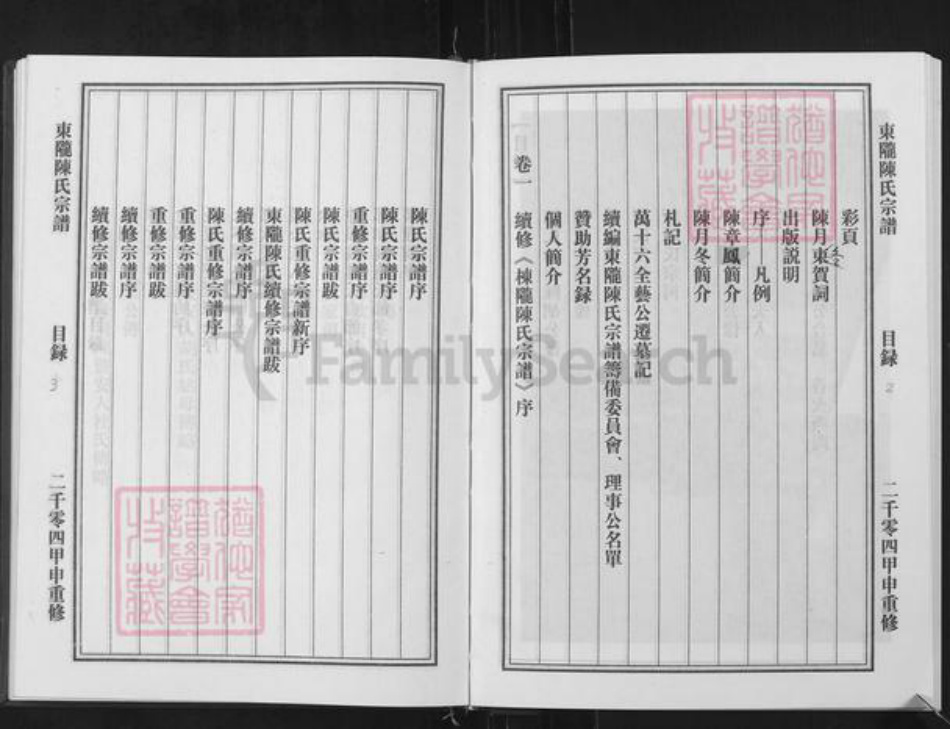 東隴陳氏宗譜
目録
2
二千零四甲申重修
彩頁
陳月東賀詞
出版説明
序——凡例
陳章鳳簡介
陳月冬簡介
札記
萬十六全藝公遷墓記
續編東隴陳氏宗譜籌備委員會、理事公名單
贊助芳名録
個人簡介
卷一
續修《棟隴陳氏宗譜》序
陳氏宗譜序
陳氏宗譜序
重修宗譜序
陳氏宗譜跋
陳氏重修宗譜新序
東隴陳氏續修宗譜跋
續修宗譜序
陳氏重修宗譜序
重修宗譜序
重修宗譜跋
續修宗譜序
續修宗譜跋
東隴陳氏宗譜
目録
3
二千零四甲申重修
FamilySearch